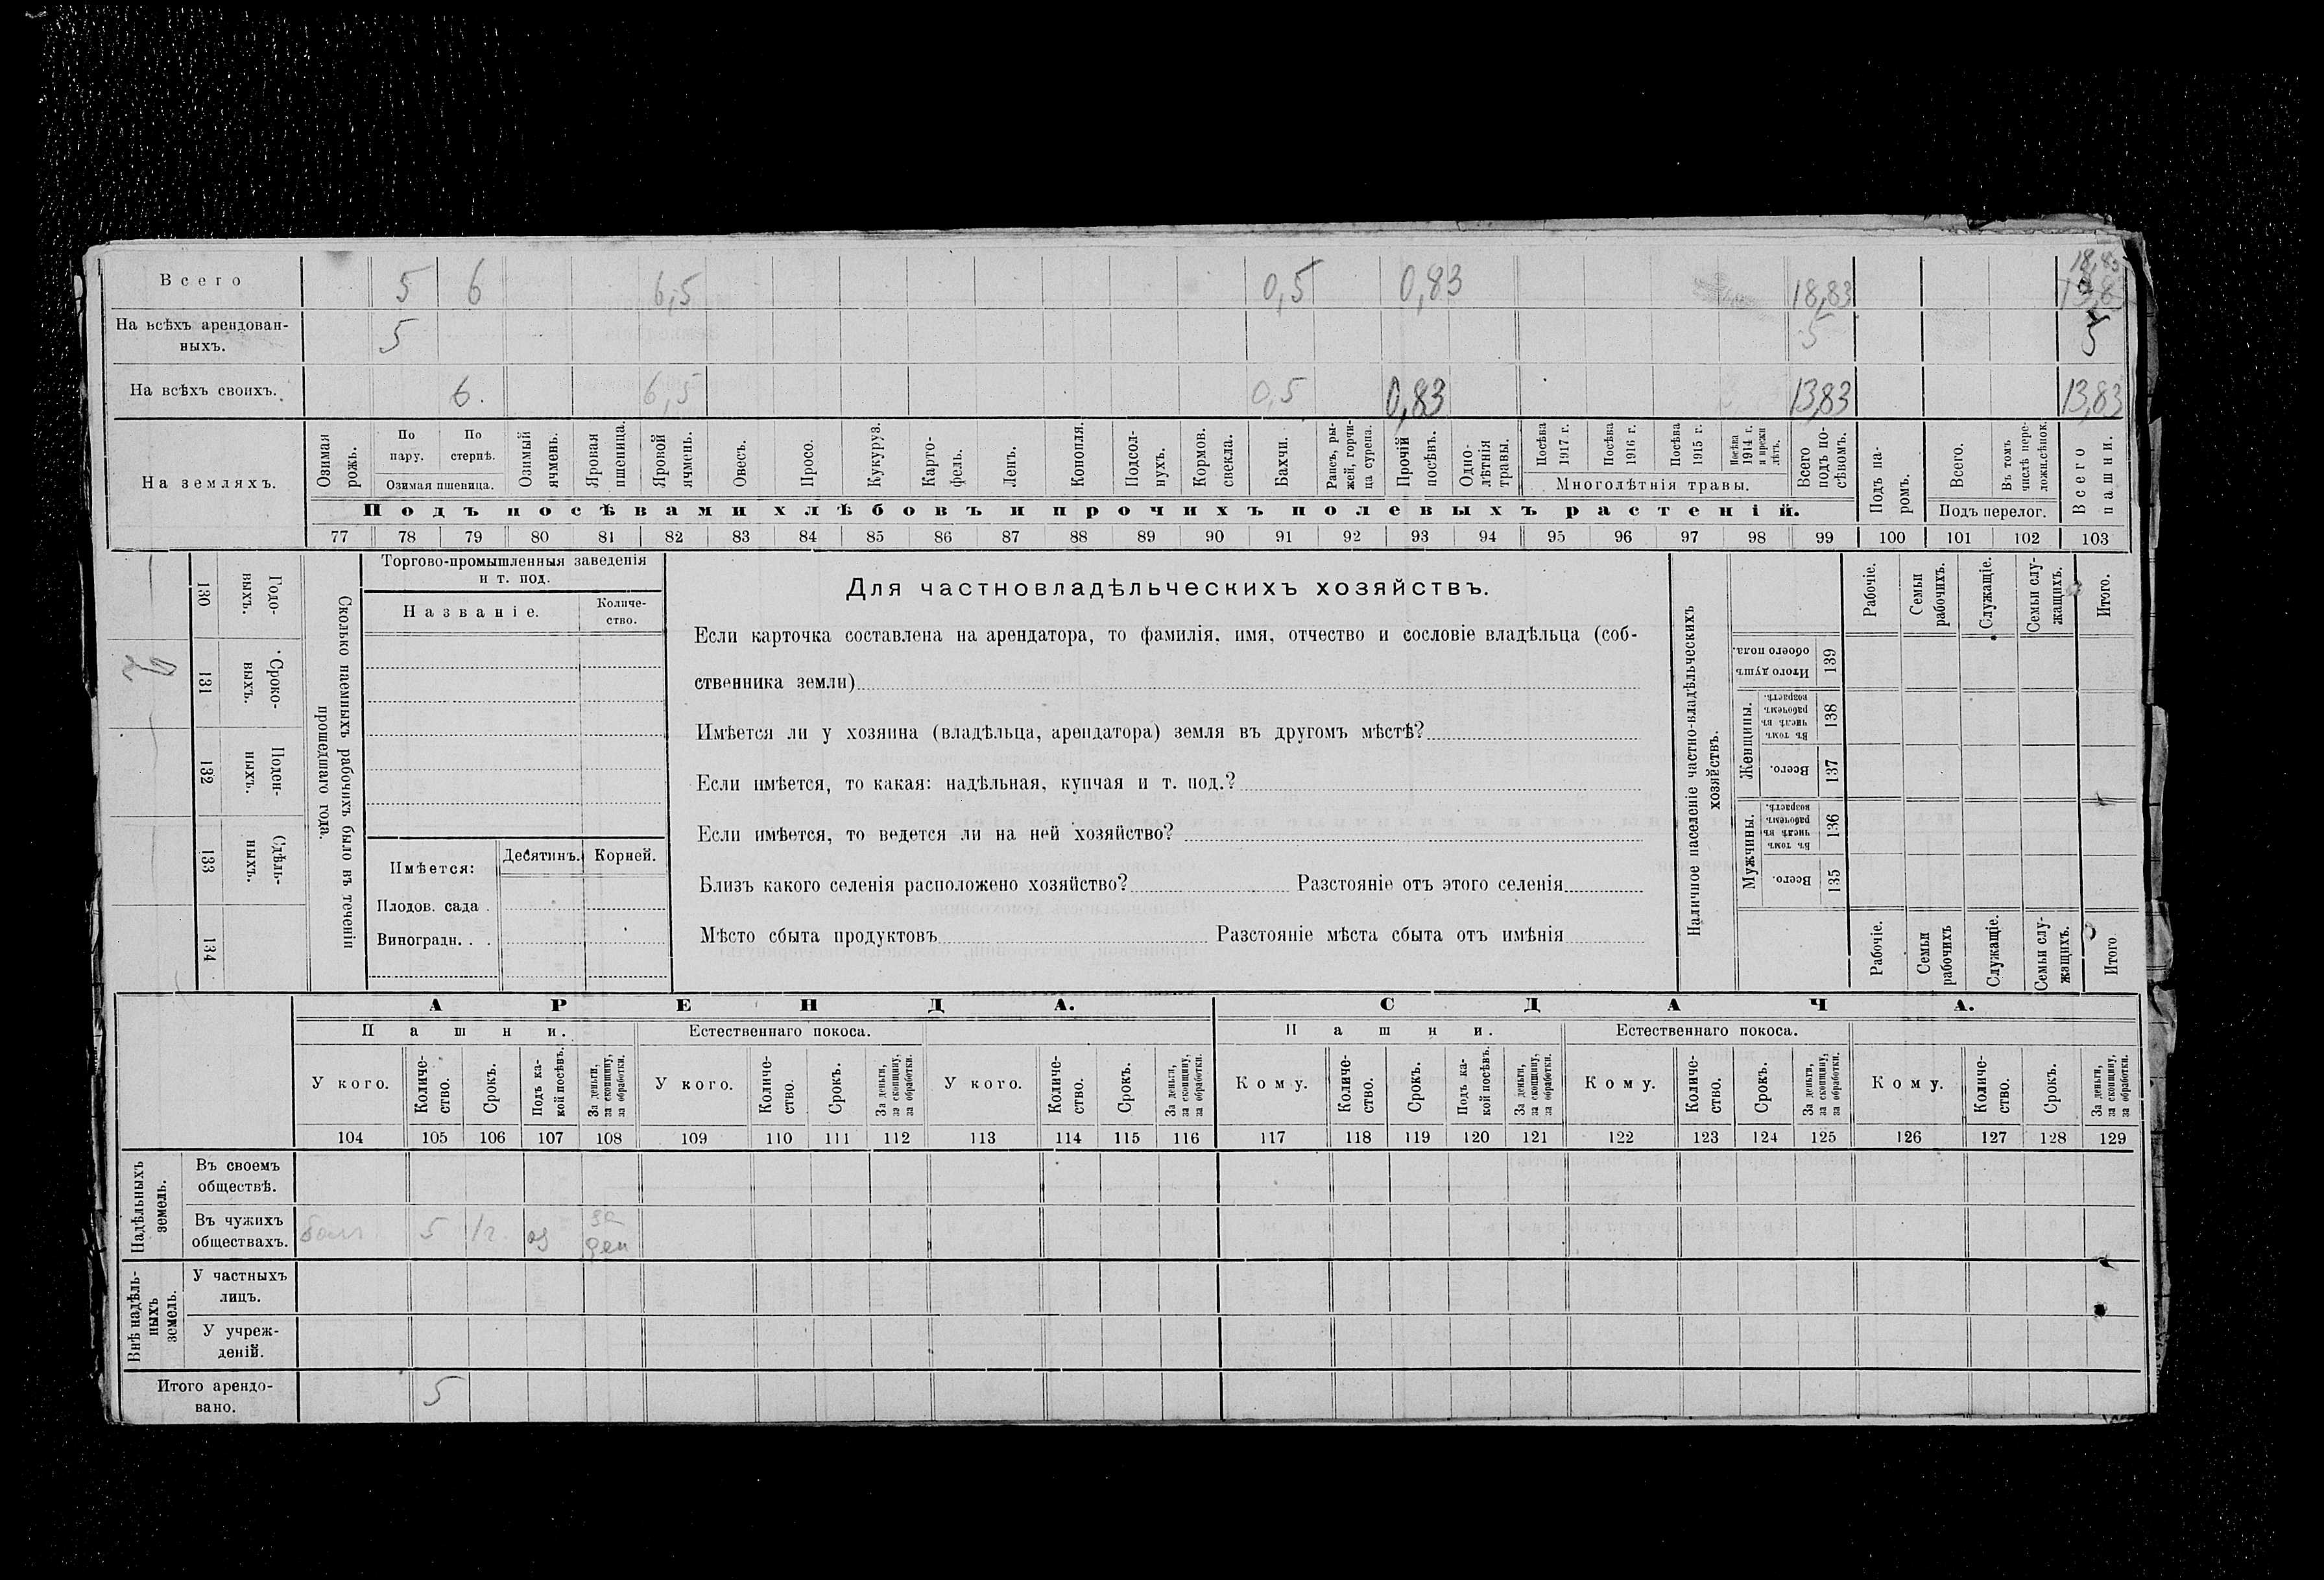 Всего 5 6 6,5 0,5 0,83 18,83 18,83
На всѣхъ арендован-
ныхъ. 5 5 5
На всѣхъ своихъ. 6. 6,5 0,5 0,83 13,83 13,83
На земляхъ.
Озимая рожь.
По пару.
По стернѣ.
Озимая пшеница.
Озимый ячмень.
Яровая пшеница.
Яровой ячмень.
Овесъ.
Просо.
Кукуруз.
Карто-
фель.
Ленъ.
Конопля.
Подсол-
нухъ.
Кормов. свекла.
Бахчи.
Рапсъ, ры-
жей, горчи-
ца сурепа.
Прочій посѣвъ.
Одно-
лѣтнія травы.
Посѣва 1917 г.
Посѣва 1916 г.
Посѣва 1915 г.
Посѣва 1914 г. и прежн лѣтъ.
Многолѣтнія травы.
Всего подъ по-
сѣвомъ.
Подъ па-
ромъ.
Всего.
Въ томъ числѣ пере-
ложн.сѣнок.
Подъ перелог.
Всего пашни.
Подъ посѣвами хлѣбовъ и прочихъ полевыхъ растеній.
77 78 79 80 81 82 83 84 85 86 87 88 89 90 91 92 93 94 95 96 97 98 99 100 101 102 103
130 Годо-
выхъ.
131 Сроко-
выхъ.
132 Поден-
ныхъ.
133 Сдѣль-
ныхъ.
134
Сколько наемныхъ рабочихъ было въ теченіи
прошедшаго года.
Торгово-промышленныя заведенія
и т. под.
Названіе.
Количе-
ство.
Имѣется:
Десятинъ.
Корней.
Плодов. сада .
Виноградн. . .
Для частновладѣльческихъ хозяйствъ.
Если карточка составлена на арендатора, то фамилія, имя, отчество и сословіе владѣльца (соб-
ственника земли)
Имѣется ли у хозяина (владѣльца, арендатора) земля въ другомъ мѣстѣ?
Если имѣется, то какая: надѣльная, купчая и т. под.?
Если имѣется, то ведется ли на ней хозяйство?
Близъ какого селенія расположено хозяйство? Разстояніе отъ этого селенія
Мѣсто сбыта продуктовъ Разстояніе мѣста сбыта отъ имѣнія
Наличное населеніе частно-владѣльческихъ
хозяйствъ.
Рабочіе.
Семьи рабочихъ.
Служащіе.
Семьи слу-
жащихъ.
Итого.
Итого душъ обоего пола. 139
Женщины.
Въ томъ числѣ въ рабочемъ возрастѣ. 138
Всего. 137
Мужчины.
Въ томъ числѣ въ рабочемъ возрастѣ. 136
Всего. 135
Рабочіе.
Семьи рабочихъ
Служащіе.
Семьи слу-
жащихъ.
Итого
АРЕНДА. СДАЧА.
Пашни. Естественнаго покоса. Пашни. Естественнаго покоса.
У кого.
Количе-
ство.
Срокъ.
Подъ ка-
кой посѣвъ.
За деньги, за скопщину, за обработки.
У кого.
Количе-
ство.
Срокъ.
За деньги, за скопщину, за обработки.
У кого.
Количе-
ство.
Срокъ.
За деньги, за скопщину, за обработки.
Кому.
Количе-
ство.
Срокъ.
Подъ ка-
кой посѣвъ.
За деньги, за скопщину, за обработки.
Кому.
Количе-
ство.
Срокъ.
За деньги, за скопщину, за обработки.
Кому.
Количе-
ство.
Срокъ.
За деньги, за скопщину, за обработки.
104 105 106 107 108 109 110 111 112 113 114 115 116 117 118 119 120 121 122 123 124 125 126 127 128 129
Надѣльныхъ земель.
Въ своемъ
обществѣ.
Въ чужихъ
обществахъ. 5 1 г. оз за ден
Внѣ надѣль-
ныхъ земель.
У частныхъ
лицъ.
У учреж-
деній.
Итого арендо-
вано. 5